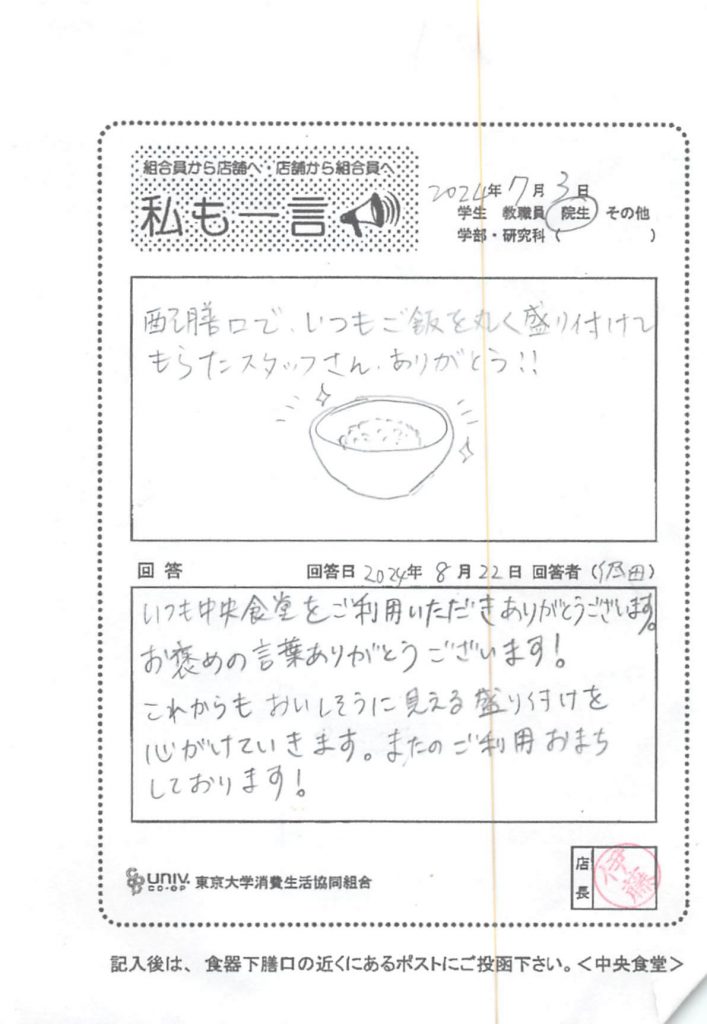 組合員から店舗へ・店舗から組合員へ
私も一言
2024年 7月 3日
学生 教職員 院生 その他
学部・研究科 ( )
配膳口で、いつもご飯を丸く盛り付けて
もらたスタッフさん、ありがとう!!
回答 回答日 2024年 8月 22日 回答者 (田)
いつも中央食堂をご利用いただきありがとうございます。
お褒めの言葉ありがとうございます!
これからもおいしそうに見える盛り付けを
心がけていきます。またのご利用おまち
しております!
UNIV. CO-OP 東京大学消費生活協同組合
店長 伊藤
記入後は、食器下膳口の近くにあるポストにご投函下さい。<中央食堂>